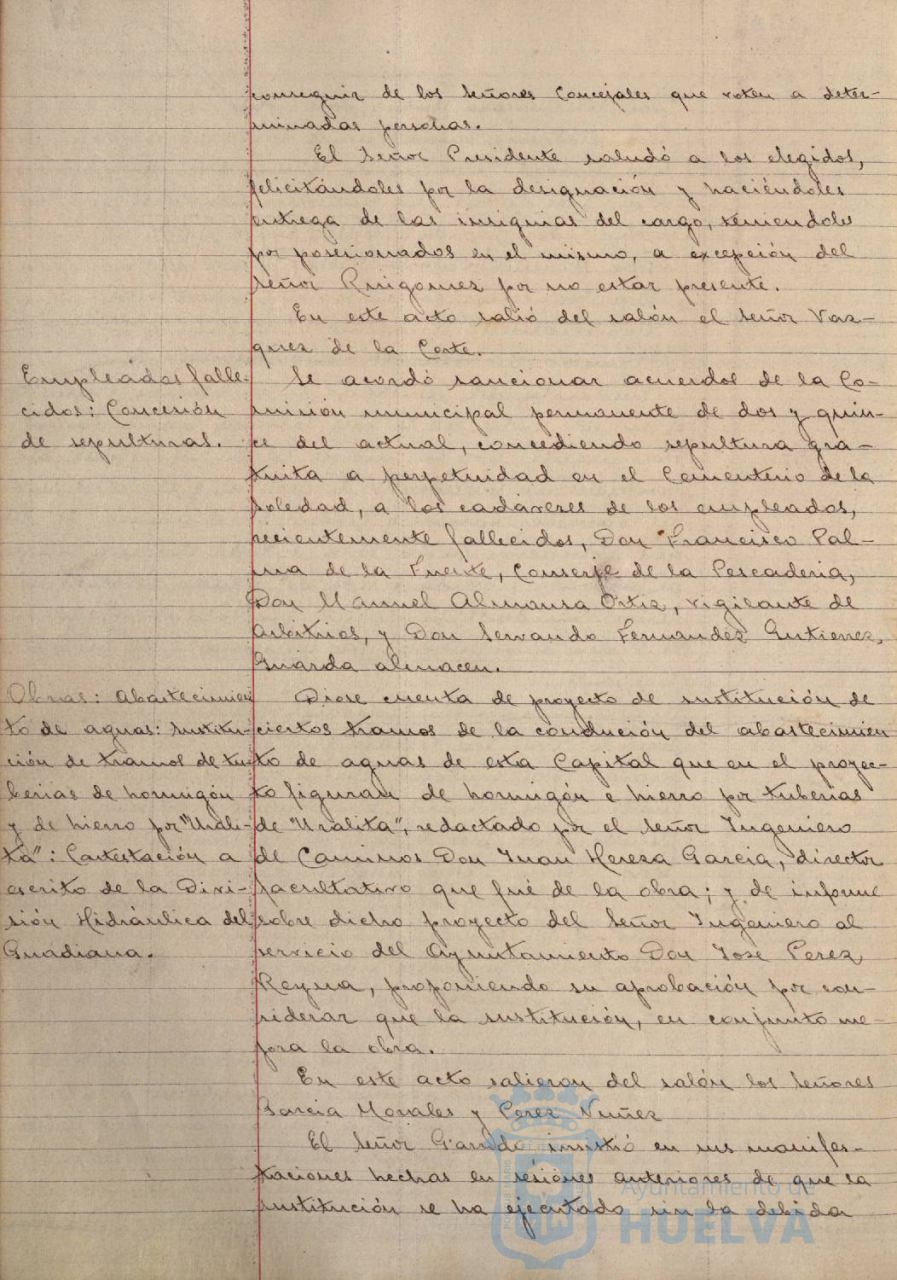 conseguir de los Señores Concejales que voten a deter-
minadas personas.
El Señor Presidente saludó a los elegidos,
felicitándoles por la designación y haciéndoles
entrega de las insignias del cargo, teniendoles
por posesionados en el mismo, a excepción del
Señor Ruigomez por no estar presente.
En este acto salió del salón el Señor Vaz-
quez de la Corte.
Empleados falle-
cidos: Concesión
de sepulturas.
Se acordó sancionar acuerdos de la Co-
misión municipal permanente de dos y quin-
ce del actual, concediendo sepultura gra-
tuita a perpetuidad en el Cementerio de la
Soledad, a los cadáveres de los empleados,
recientemente fallecidos, Don Francisco Pal-
ma de la Fuente, Conserje de la Pescaderia,
Don Manuel Almansa Ortiz, vigilante de
Arbitrios, y Don Servando Fernandez Gutierrez,
Guarda almacen.
Obras: Abastecimien
to de aguas: Sustitu-
ción de tramos de tu-
berias de hormigón
y de hierro por "Urali-
ta": Contestación a
escrito de la Divi-
sión Hidráulica del
Guadiana.
Diose cuenta de proyecto de sustitución de
ciertos tramos de la condución del abastecimien
to de aguas de esta Capital que en el proyec-
to figuran de hormigón e hierro por tuberias
de "Uralita", redactado por el Señor Ingeniero
de Caminos Don Juan Hereza Garcia, director
facultativo que fué de la obra; y de informe
sobre dicho proyecto del Señor Ingeniero al
servicio del Ayuntamiento Don José Perez
Reyna, proponiendo su aprobación por con-
siderar que la sustitución, en conjunto me-
jora la obra.
En este acto salieron del salón los Señores
Garcia Morales y Perez Nuñez
El Señor Garrido insistió en sus manifes-
taciones hechas en sesiones anteriores de que la
sustitución se ha ejecutado sin la debida
Ayuntamiento de
HUELVA